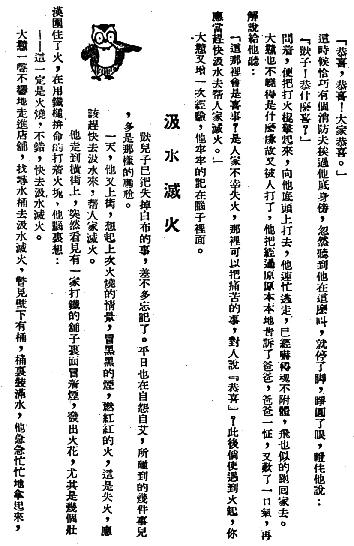 『恭喜，恭喜！大家恭喜。』
這時候恰巧有個消防夫挨過他底身傍，忽然聽到他在這麼叫，就停了脚，睜圓了眼，瞪住他說：
『獃子！恭什麼喜？』
問着，便把打火棍擎起來，向他底頭上打去，他連忙逃走，已經嚇得魂不附體，飛也似的跑回家去。
大戇也不曉得是什麼緣故又被人打了，他把經過原原本本地告訴了爸爸，爸爸一怔，又歎了一口氣，再
解說給他聽：
『這那裡會是喜事？是人家不幸失火，那裡可以把痛苦的事，對人說『恭喜』？此後倘使遇到火起，你
應當趕快汲水去幫人家滅火。』
大戇又增一次經驗，他牢牢的記在腦子裡面。
汲水滅火
獃兒子已把失掉白布的事，差不多忘記了。平日也在自怨自艾，所碰到的幾件事兒
，多是那樣的觸霉。
一天，他又上街，想起上次火燒的情景，冒黑黑的煙，燃紅紅的火，這是失火，應
該趕快汲水來，幫人家滅火。
他走到橫街上，突然看見有一家打鐵的舖子裏面冒着煙，發出火花，尤其是幾個壯
漢圍住了火，在用鐵槌拚命的打着火塊，他腦裏想：
——這一定是火燒，不錯，快去汲水滅火。
大戇一聲不響地走進店舖，找尋水桶去汲水滅火，瞥見壁下有桶，桶裏裝滿水，他急急忙忙地拿起來，